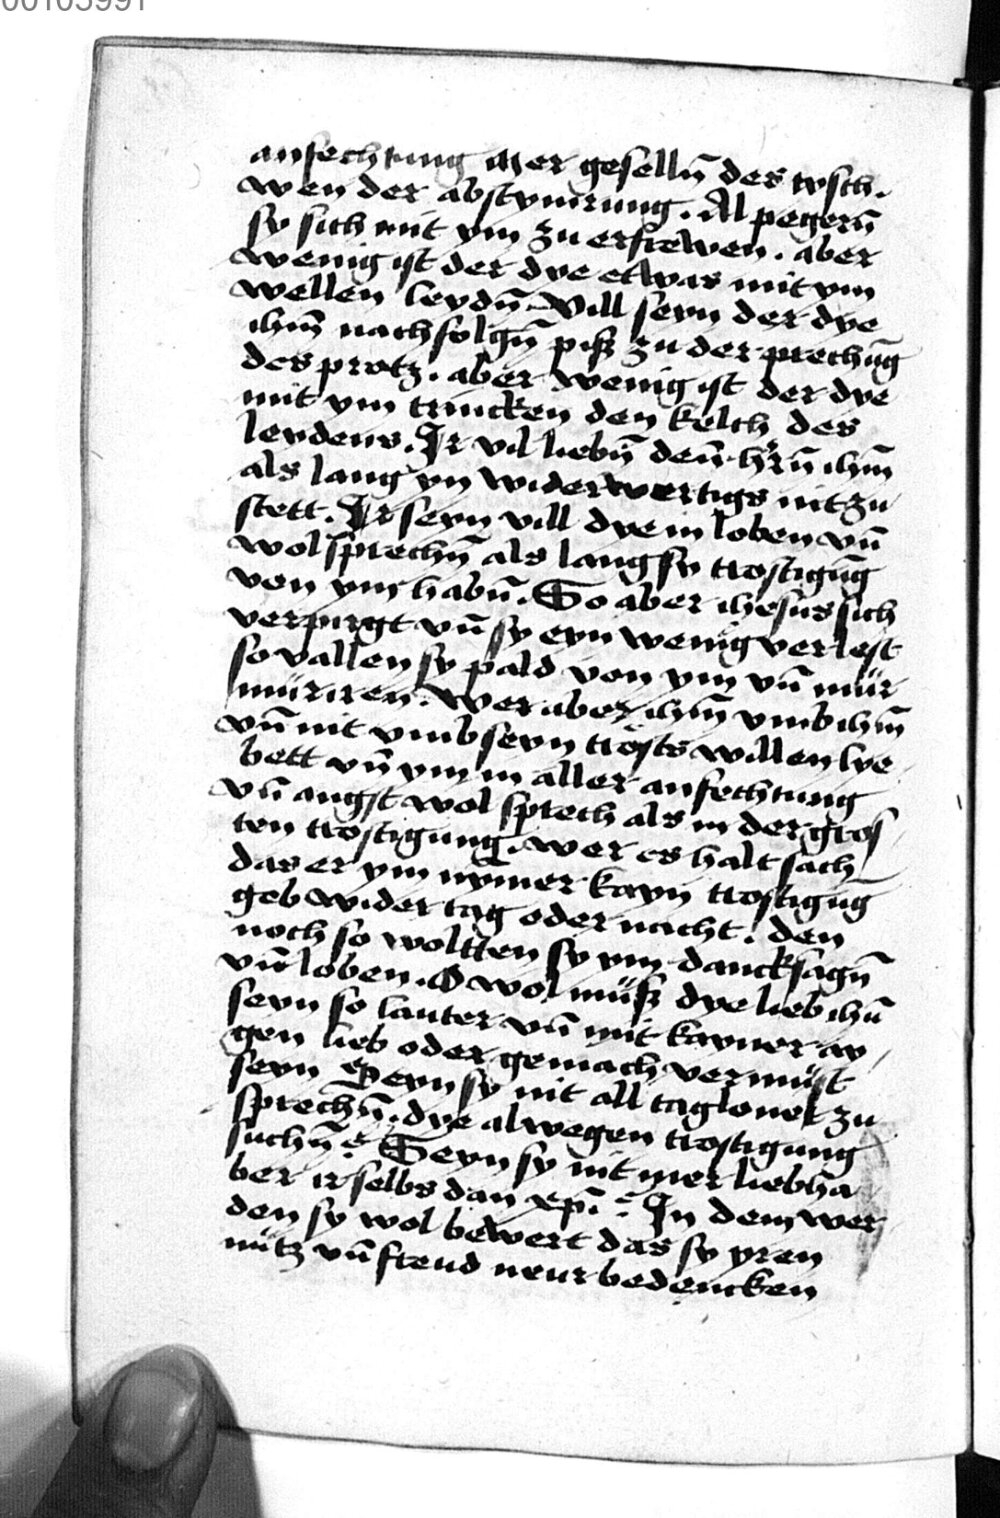 00103991
anfechtung Mer geselln̄ des tysch.
wen der abstynirung. Al pegern̄
sy sich mit ym zu erfrewen. aber
wenig ist der dye etwas mit ym
wellen leydn̄. Vill seyn der dye
ihm̄ nachfolgn̄ piß zu der prechūg
des protz. aber wenig ist der dye
mit ym trincken den kelch des
leydens. Ir vil liebn̄ den hern̄ ihm̄
als lang yn widerwertigs nit zu
stett. Ir seyn vill dye in loben vn̄
wolsprechn̄ als lang sy trostigūg
von ym habn̄. So aber ihesus sich
verpirgt vn̄ sy eyn wenig verlest
so vallen sy pald von ym vn̄ mür
müriren. Wer aber ihm̄ vmb ihm̄
vn̄ nit vmb seyn trösts willen lye
bett vn̄ ym in aller anfechtung
vn̄ angst wol sprech als in der gros
ten trostigung. wer es halt sach
das er ym nȳmer kayn trostigūg
geb wider tag oder nacht. den
noch so woltten sy ym dancksagn̄
vn̄ loben. O wol müß dye lieb ihū
seyn so lauter vn̄ mit kayner ay
gen lieb oder gemach vermüst
seyn Seyn sy nit all tagloner zu
sprechn̄. dye alwegen trostigung
suchn̄? Seyn sy nit mer liebha
ber ir selbs dan xp̄i? In dem wer
den sy wol bewert das sy yren
nütz vn̄ freud neur bedencken